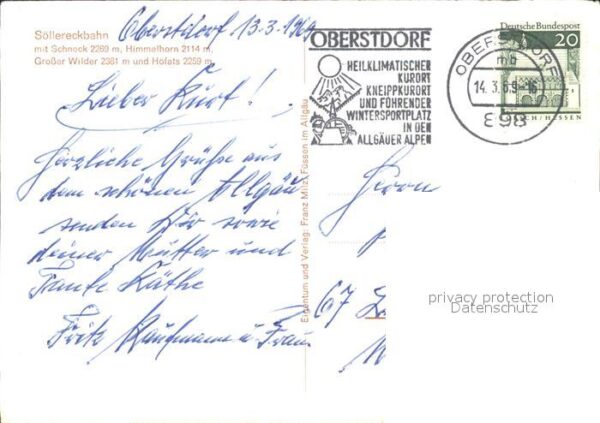 Söllereckbahn
mit Schnock 2269 m, Himmelhorn 2114 m,
Großer Wilder 2381 m und Höfats 2259 m.
Oberstdorf 13.3.1969
Lieber Kurt!
Herzliche Grüße aus
dem schönen Allgäu
senden Dir sowie
deiner Mutter und
Tante Käthe
Fritz Kaufmann u. Frau
Eigentum und Verlag: Franz Milz, Füssen im Allgäu
OBERSTDORF
HEILKLIMATISCHER
KURORT
KNEIPPKURORT
UND FÜHRENDER
WINTERSPORTPLATZ
IN DEN
ALLGÄUER ALPEN
OBERSTDORF
mb
14.3.69-16
898
Deutsche Bundespost
20
CH/HESSEN
Herrn
67
privacy protection
Datenschutz